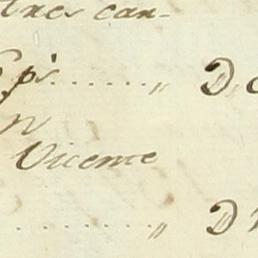 tres can-
p.s ........ " D
n
Vicente
........ " D